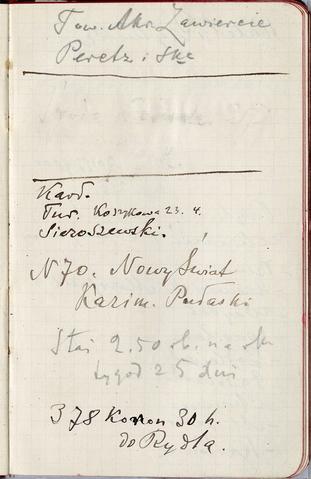 Tow. Akc. Zawiercie
Peretz i Ska
Kard.
Tur. Koszykowa 23. 4.
Sieroszewski.
N 70. Nowy Świat
Kazim. Pułaski
2.50 rb. na
25 dni
378 Koron 30 h.
do Rydla.